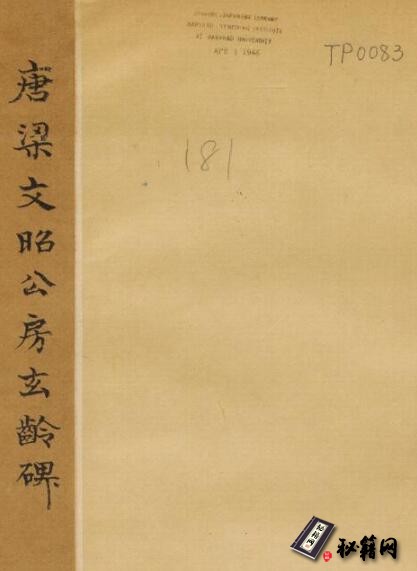 唐梁文昭公房玄齡碑
CHINESE-JAPANESE LIBRARY
HARVARD-YENCHING INSTITUTE
AT HARVARD UNIVERSITY
APR 1 1946
TP0083
181
秘籍网
秘籍网